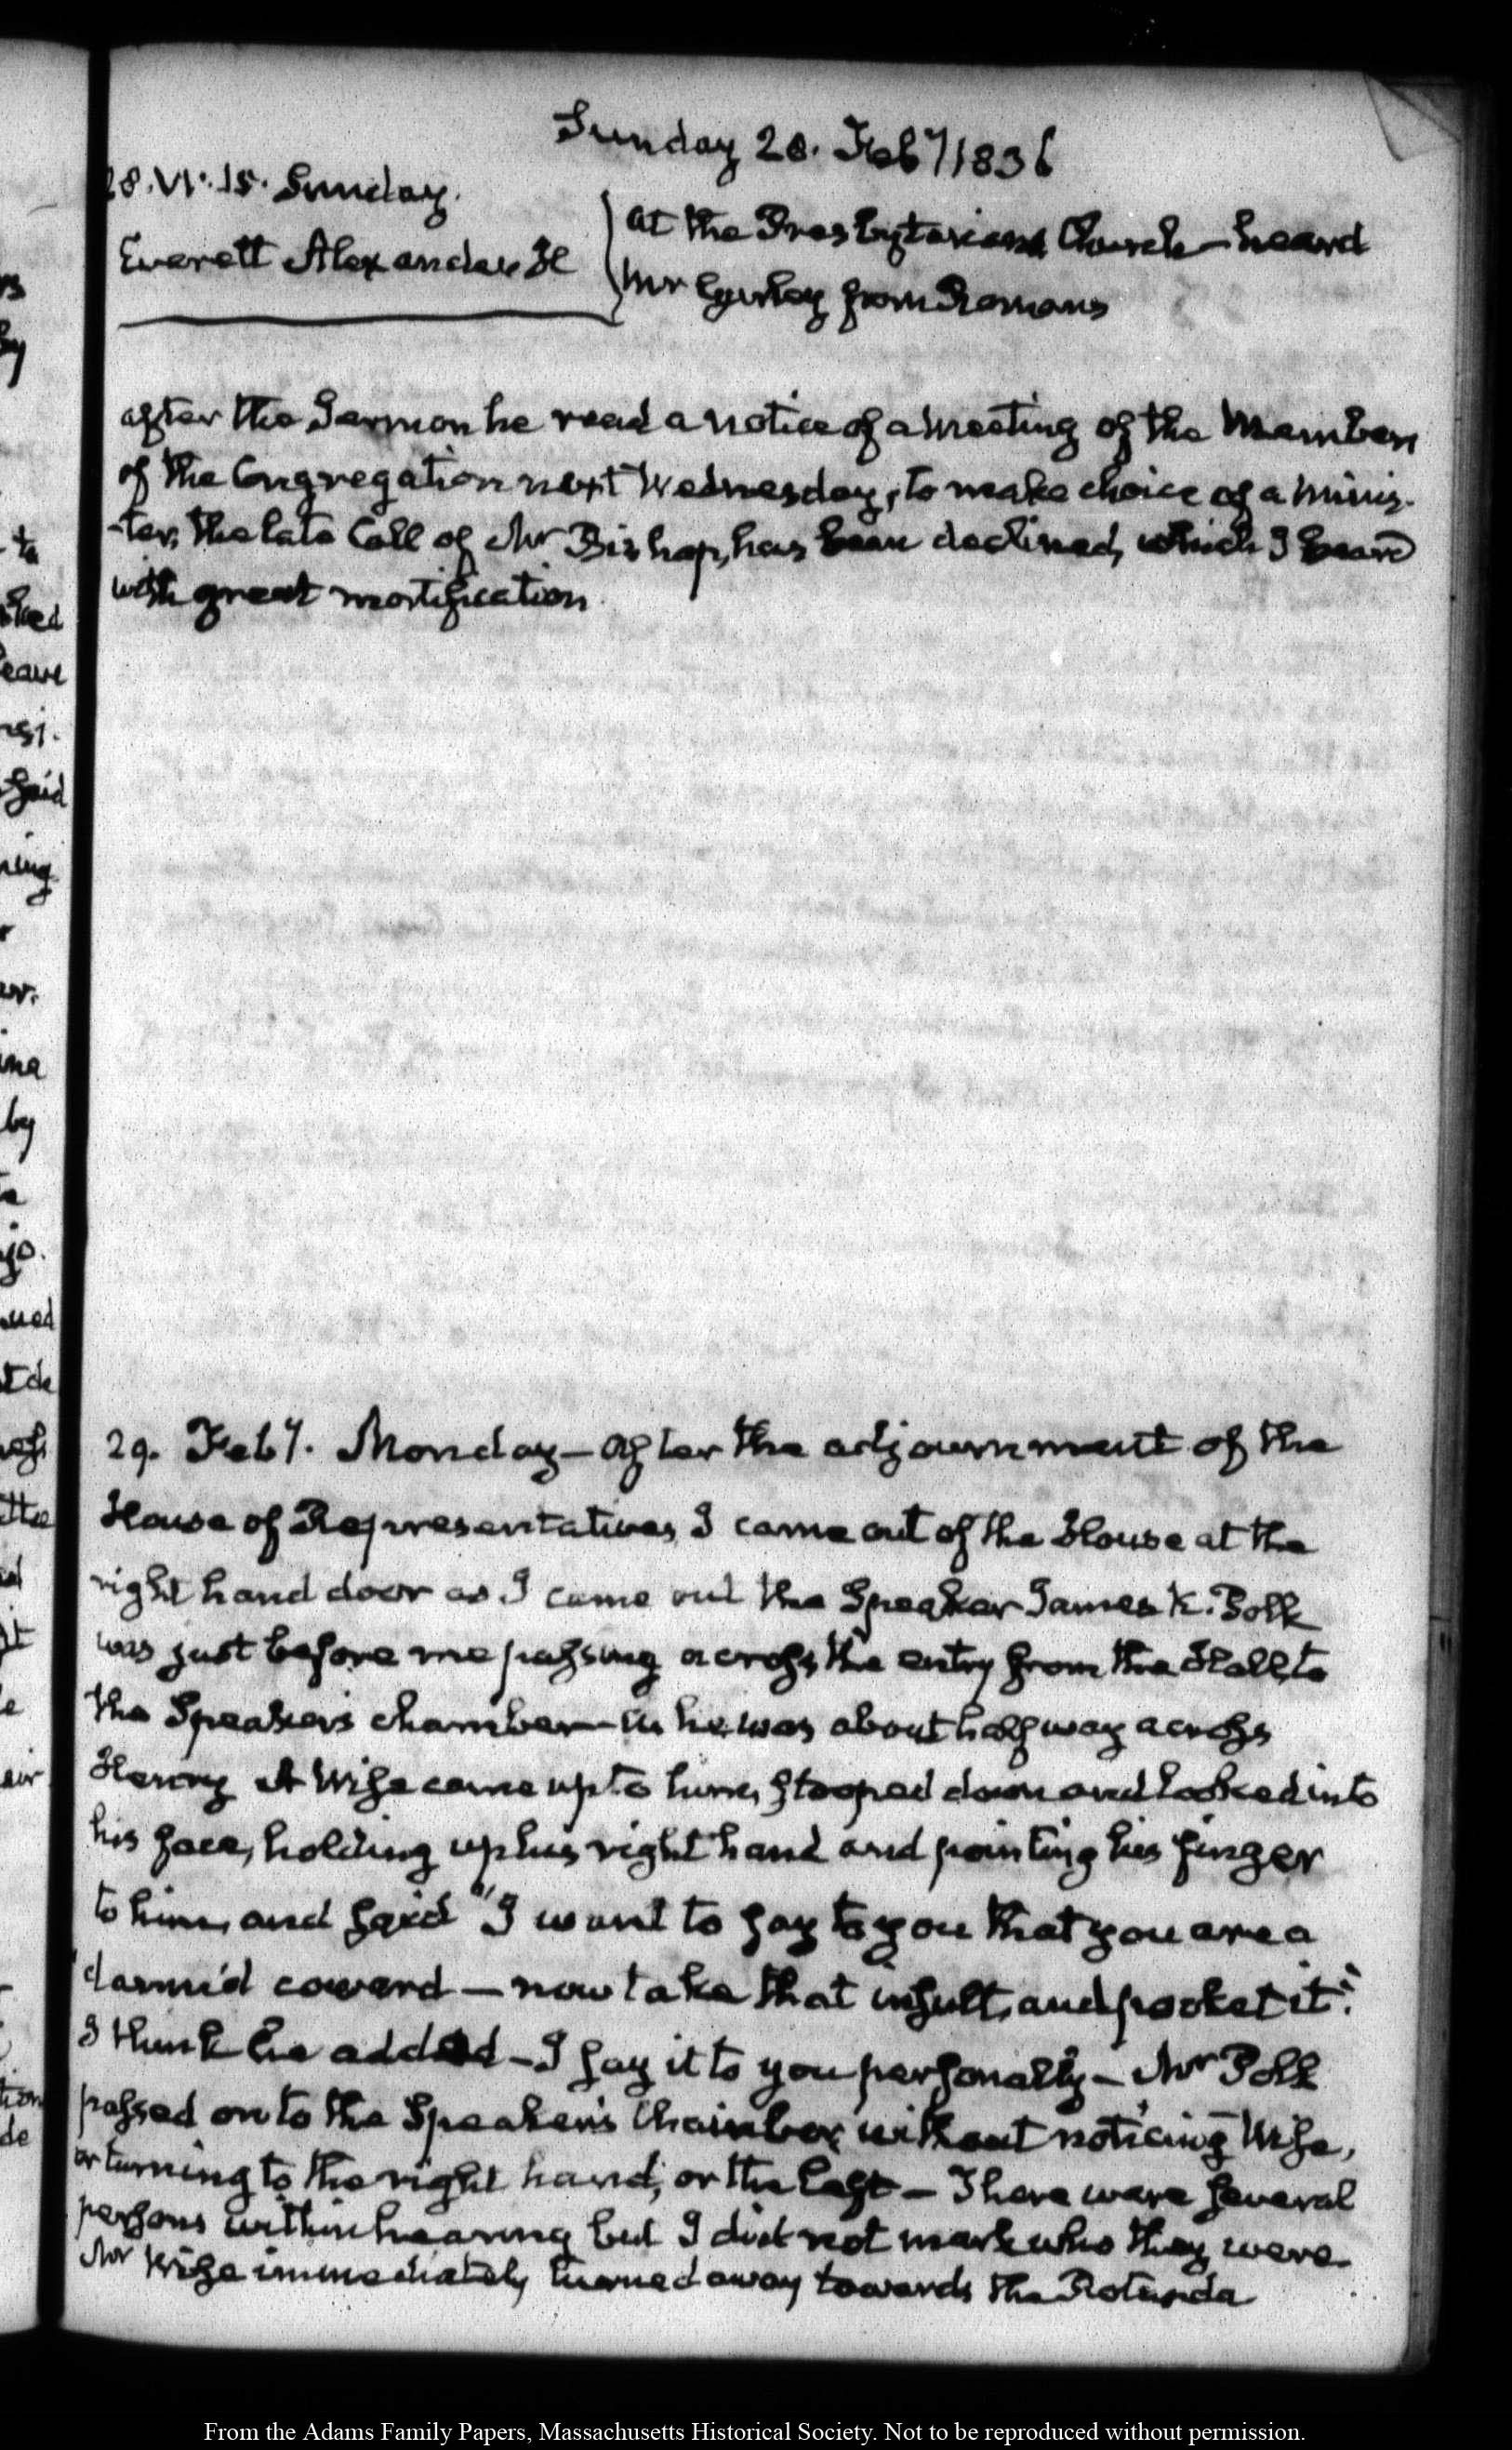 Sunday 28. Feby 1836
28. VI. 15. Sunday.
Everett Alexander H
at the Presbyterian Church – heard
Mr Gurley from Romans
after the Sermon he read a notice of a meeting of the Members
of the Congregation next Wednesday, to make choice of a Minis-
-ter, the late Call of Mr Bishop, has been declined, which I heard
with great mortification
29. Feby. Monday – After the adjournment of the
House of Representatives, I came out of the House at the
right hand door as I came out the Speaker James K. Polk
was just before me passing across the entry from the Hall, to
the Speaker's chamber – As he was about half way across
Henry A Wise came up to him, stooped down and looked into
his face, holding up his right hand and pointing his finger
to him, and said "I want to say to you that you are a
"damn'd coward – now take that insult, and pocket it."
I think he added – I say it to you personally – Mr Polk
passed on to the Speaker's Chamber, without noticing Wise,
or turning to the right hand, or the left – There were several
persons within hearing but I did not mark who they were –
Mr Wise immediately turned away towards the Rotunda
From the Adams Family Papers, Massachusetts Historical Society. Not to be reproduced without permission.